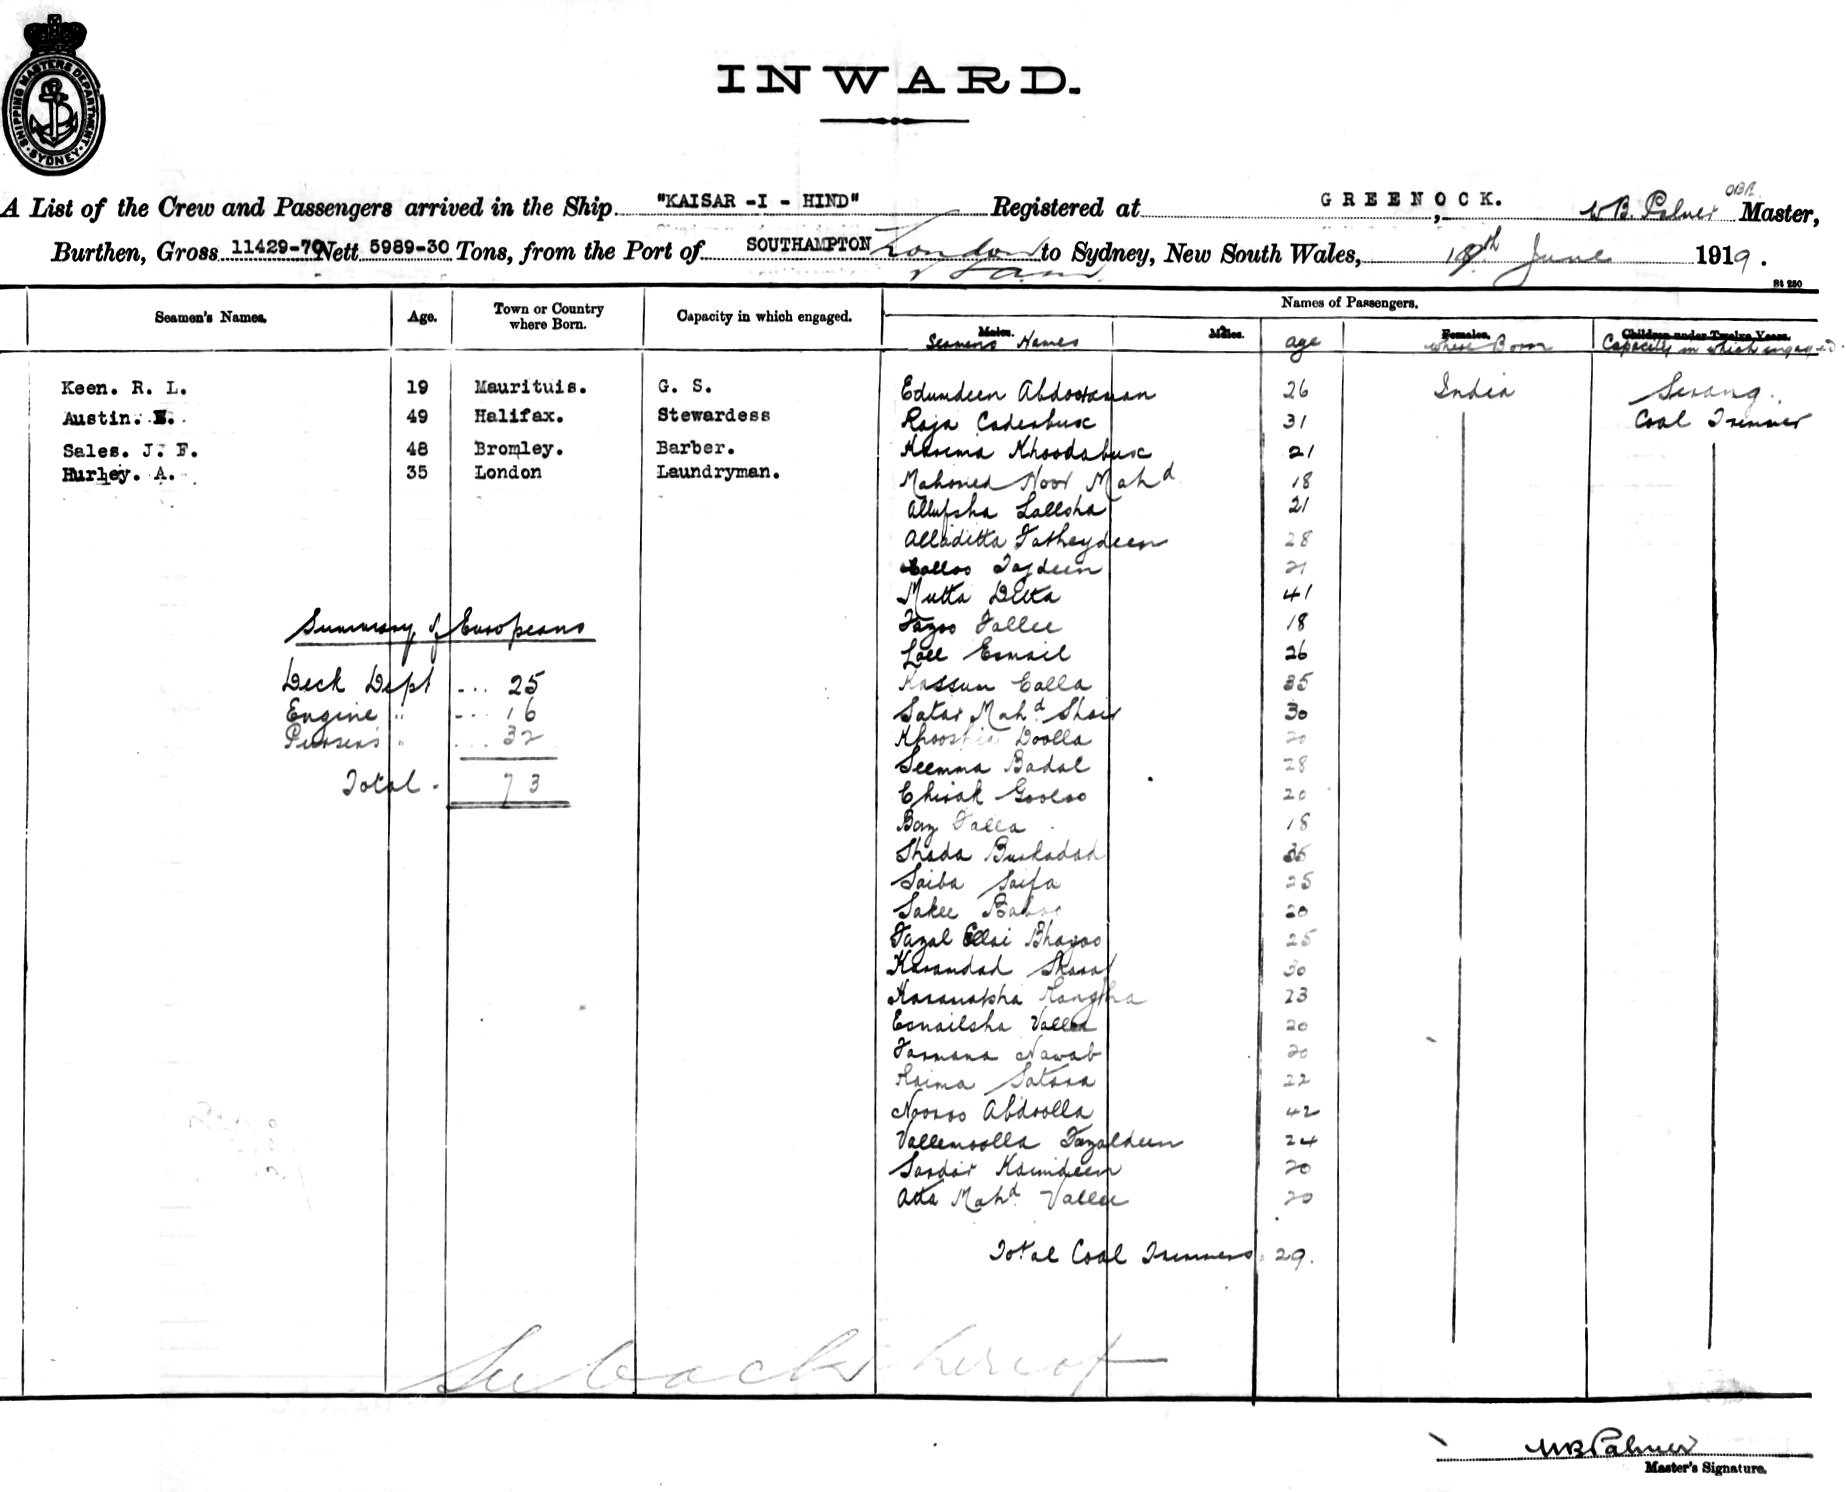 SHIPPING MASTERS DEPARTMENT. SYDNEY
INWARD.
A List of the Crew and Passengers arrived in the Ship "KAISAR -I - HIND" Registered at GREENOCK. W B. Palmer OBE. Master,
Burthen, Gross 11429-70 Nett 5989-30 Tons, from the Port of SOUTHAMPTON London to Sydney, New South Wales, June 1919.
St 250
Seamen's Names. Age. Town or Country where Born. Capacity in which engaged. Names of Passengers.
Males. Males. Females. Children under Twelve Years.
Seamens Names age where Born Capacity in which engaged
Keen. R. L. 19 Maurituis. G. S. Edumdeen Abdooraman 26 India Serang.
Austin. 49 Halifax. Stewardess Raja Caderbusc 31 Coal Trimmer
Sales. J. F. 48 Bromley. Barber. Karima Khoodabusc 21
Hurley. A. 35 London Laundryman. Mahomed Noor Mahd 18
Allufsha Lallsha 21
Alladitta Fatheydeen 28
Calloo Tajdeen 21
Mutta Ditta 41
Fazoo Fallee 18
Lall Esmail 26
Summary of Europeans
Deck Dept ... 25
Engine " ... 16
Pursers " ... 32
Total - 73
Kassum Calla 35
Satar Mahd Shair 30
Khooshia Doolla 20
Seemma Badal 28
Chirak Gooloo 20
Boy Falla 18
Shada Burkadad 35
Saiba Saifa 25
Sakee Baboo 20
Fazal Ellai Bhagoo 25
Karamdad Sharaf 30
Karamatsha Rangsha 23
Esmailsha Vallee 20
Farmana Nawab 20
Raima Satara 22
Nooroo Abdoolla 42
Vallemoolla Fazaldeen 24
Sardar Kaimdeen 20
Atta Mahd Vallee 20
Total Coal Trimmers. 29.
See back hereof
W B Palmer
Master's Signature.